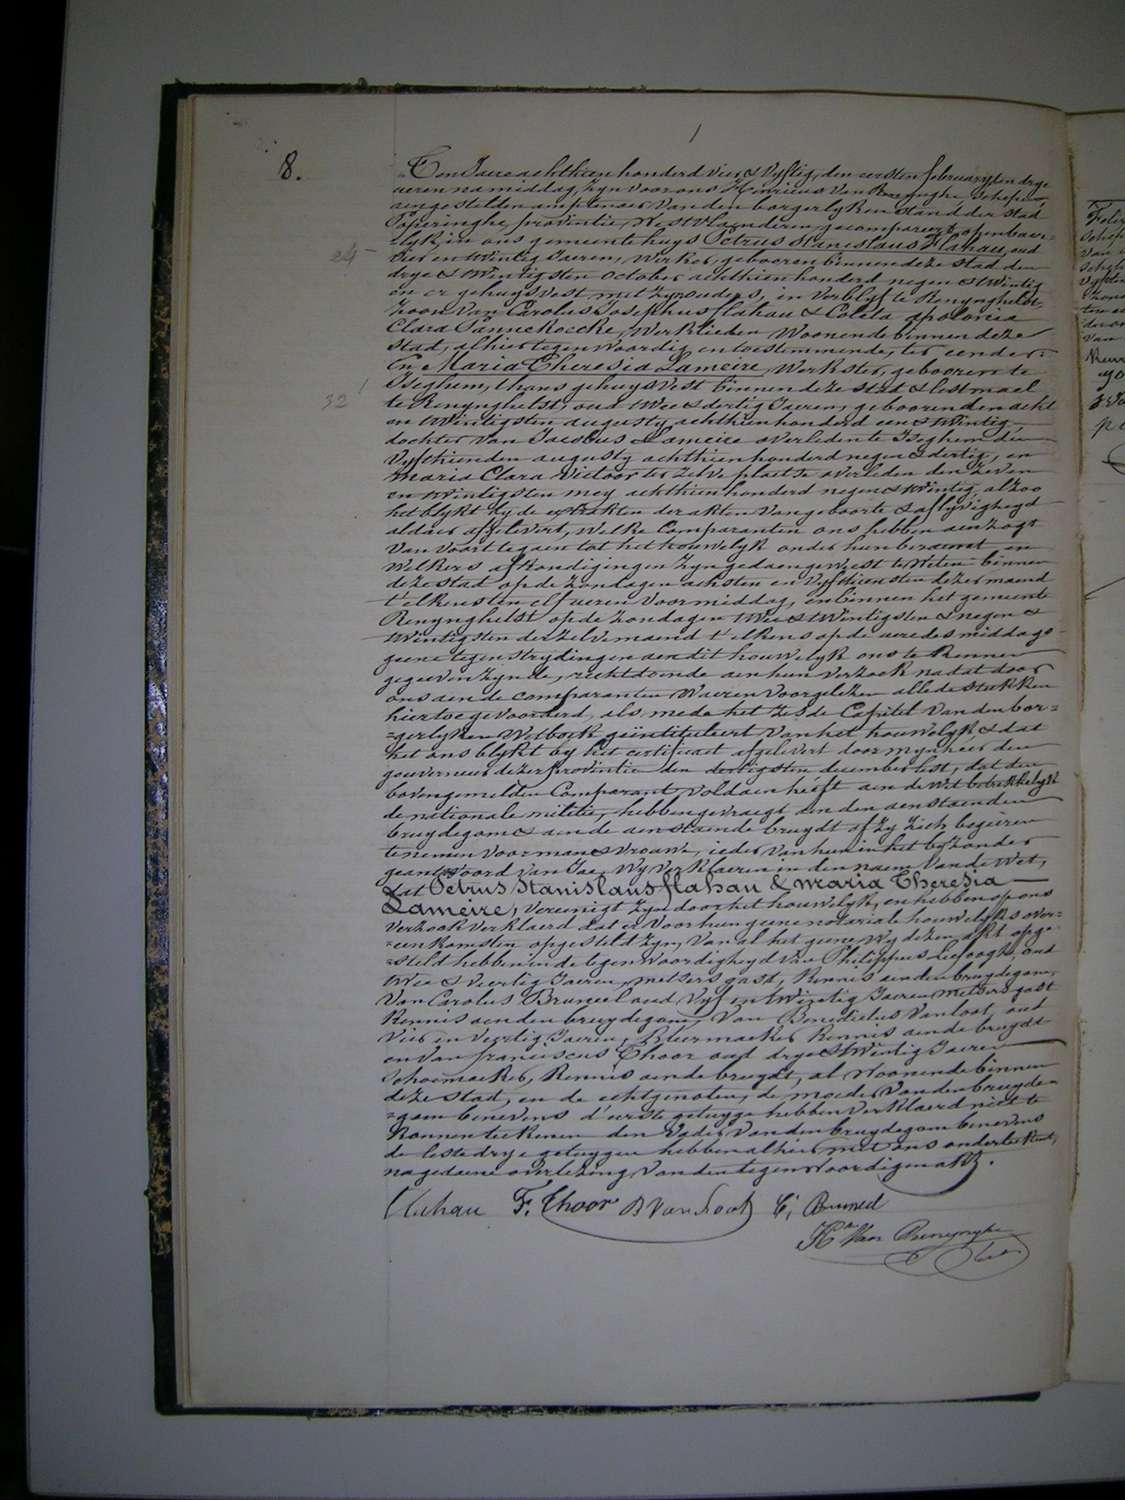 8.
Ten Jaere achthien honderd vier & vyftig, den eersten february ten drye
ueren namiddag, zyn voor ons Henricus Van Renynghe, schepen,
aengestelden amptenaer van den borgerlyken stand der stad
Poperinghe, provintie Westvlaenderen, gecompareerd openbaer-
lyk in ons gemeentehuys Petrus Stanislaus Flahau, oud
24
vier en twintig Jaeren, werker, gebooren binnen deze stad den
drye & twintigsten October achthien honderd negen & twintig
en er gehuysvest met zyn ouders, in verblyf te Renynghelst,
zoon van Carolus Josephus Flahau & Coleta apolonia
Clara Pannekoecke, werklieden woonende binnen deze
stad, alhier tegenwoordig en toestemmende, ter eender:
En Maria Theresia Lameire, werkster, gebooren te
Iseghem, thans gehuysvest binnen deze stad & lestmael
32
te Renynghelst, oud twee & dertig Jaeren, gebooren den acht
en twintigsten augusty achthien honderd een & twintig,
dochter van Jacobus Lameire overleden te Iseghem den
vyfthienden augusty achthien honderd negen & dertig, en
Maria Clara Victoor ter zelve plaetse overleden den zeven
en twintigsten mey achthien honderd negen & twintig, alzoo
het blykt by de extrakten der akten van geboorte & aflyvigheyd
aldaer afgelevert, welke Comparanten ons hebben aenzogt
van voort te gaen tot het houwelyk onder hun beraemt en
welkers afkondigingen zyn gedaen geweest te weten binnen
deze stad op de zondagen achsten en vyfthiensten dezer maend
t'elkens ten elf ueren voormiddag, en binnen het gemeente
Renynghelst op de zondagen twee & twintigsten & negen &
twintigsten der zelve maend t'elkens op de uere des middags
geene tegenstrydingen aen dit houwelyk ons te kennen
gegeven zynde, rechtdoende aen hun verzoek na dat door
ons aen de comparanten waeren voorgelezen alle de stukken
hiertoe gevoorderd, als mede het zesde Capittel van den bor=
=gerlyken Wetboek geintituleert van het houwelyk, & dat
het ons blykt by het certificaet afgelevert door mynheer den
gouverneur dezer provintie den dertigsten december lest, dat den
bovengemelden Comparant voldaen heeft aen de wet betrekkelyk
de nationale militie, hebben gevraegt aen den aenstaenden
bruydegom & aen de aenstaende bruydt of zy zich begeiren
te nemen voor man & vrouw, ieder van hun in het byzonder
geantwoord van Jae, wy verklaeren in den naem van de wet,
dat Petrus Stanislaus flahau & maria Theresia
Lameire, vereenigt zyn door het houwelyk, en hebben op ons
verzoek verklaerd dat er voor hun geene notariale houwelyks over=
=eenkomsten opgesteld zyn, van al het geene wy dezen akt opge=
=steld hebben in de tegenwoordigheyd van Philippus Liefooghe, oud
twee & veertig Jaeren, metsers gast, kennis aen den bruydegom,
van Carolus Bruneel oud vyf en twintig Jaeren metsers gast
kennis aen den bruydegom, van Benedictus Vanloot, oud
vier en veertig Jaeren, kleermaeker kennis aen de bruydt
en van franciscus Thoor oud drye & twintig Jaeren
schoenmaeker, kennis aen de bruydt, al woonende binnen
deze stad, en de echtgenoten, de moeder van den bruyde=
=gom benevens d'eerste getuyge hebben verklaerd niet te
konnen teekenen den vader van den bruydegom benevens
de leste drye getuygen hebben alhier met ons onderteekend,
na gedaene overlezing van den tegenwoordigen akt.
flahau F. Thoor B Vanloot C, Bruneel
Hri Van Renynghe